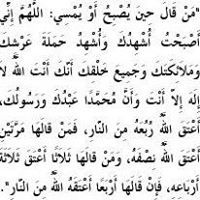 "مَنْ قَالَ حِينَ يُصْبِحُ أَوْ يُمْسِي: اللَّهُمَّ إِنِّي
أَصْبَحْتُ أُشْهِدُكَ وَأُشْهِدُ حَمَلَةَ عَرْشِكَ
وَمَلَائِكَتَكَ وَجَمِيعَ خَلْقِكَ أَنَّكَ أَنْتَ اللَّهُ لَا
إِلَهَ إِلَّا أَنْتَ وَأَنَّ مُحَمَّدًا عَبْدُكَ وَرَسُولُكَ،
أَعْتَقَ اللَّهُ رُبُعَهُ مِنَ النَّارِ، فَمَنْ قَالَهَا مَرَّتَيْنِ
أَعْتَقَ اللَّهُ نِصْفَهُ، وَمَنْ قَالَهَا ثَلَاثًا أَعْتَقَ ثَلَاثَةَ
أَرْبَاعِهِ، فَإِنْ قَالَهَا أَرْبَعًا أَعْتَقَهُ اللَّهُ مِنَ النَّارِ".